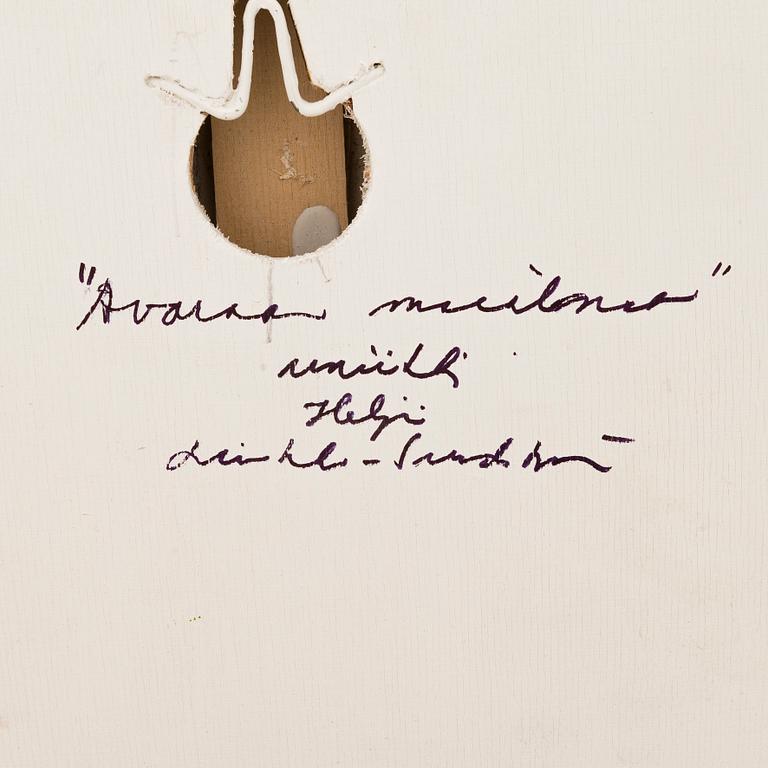 "Avaraa maailmaa"
uniikki
Helji
Liukko-Sundström